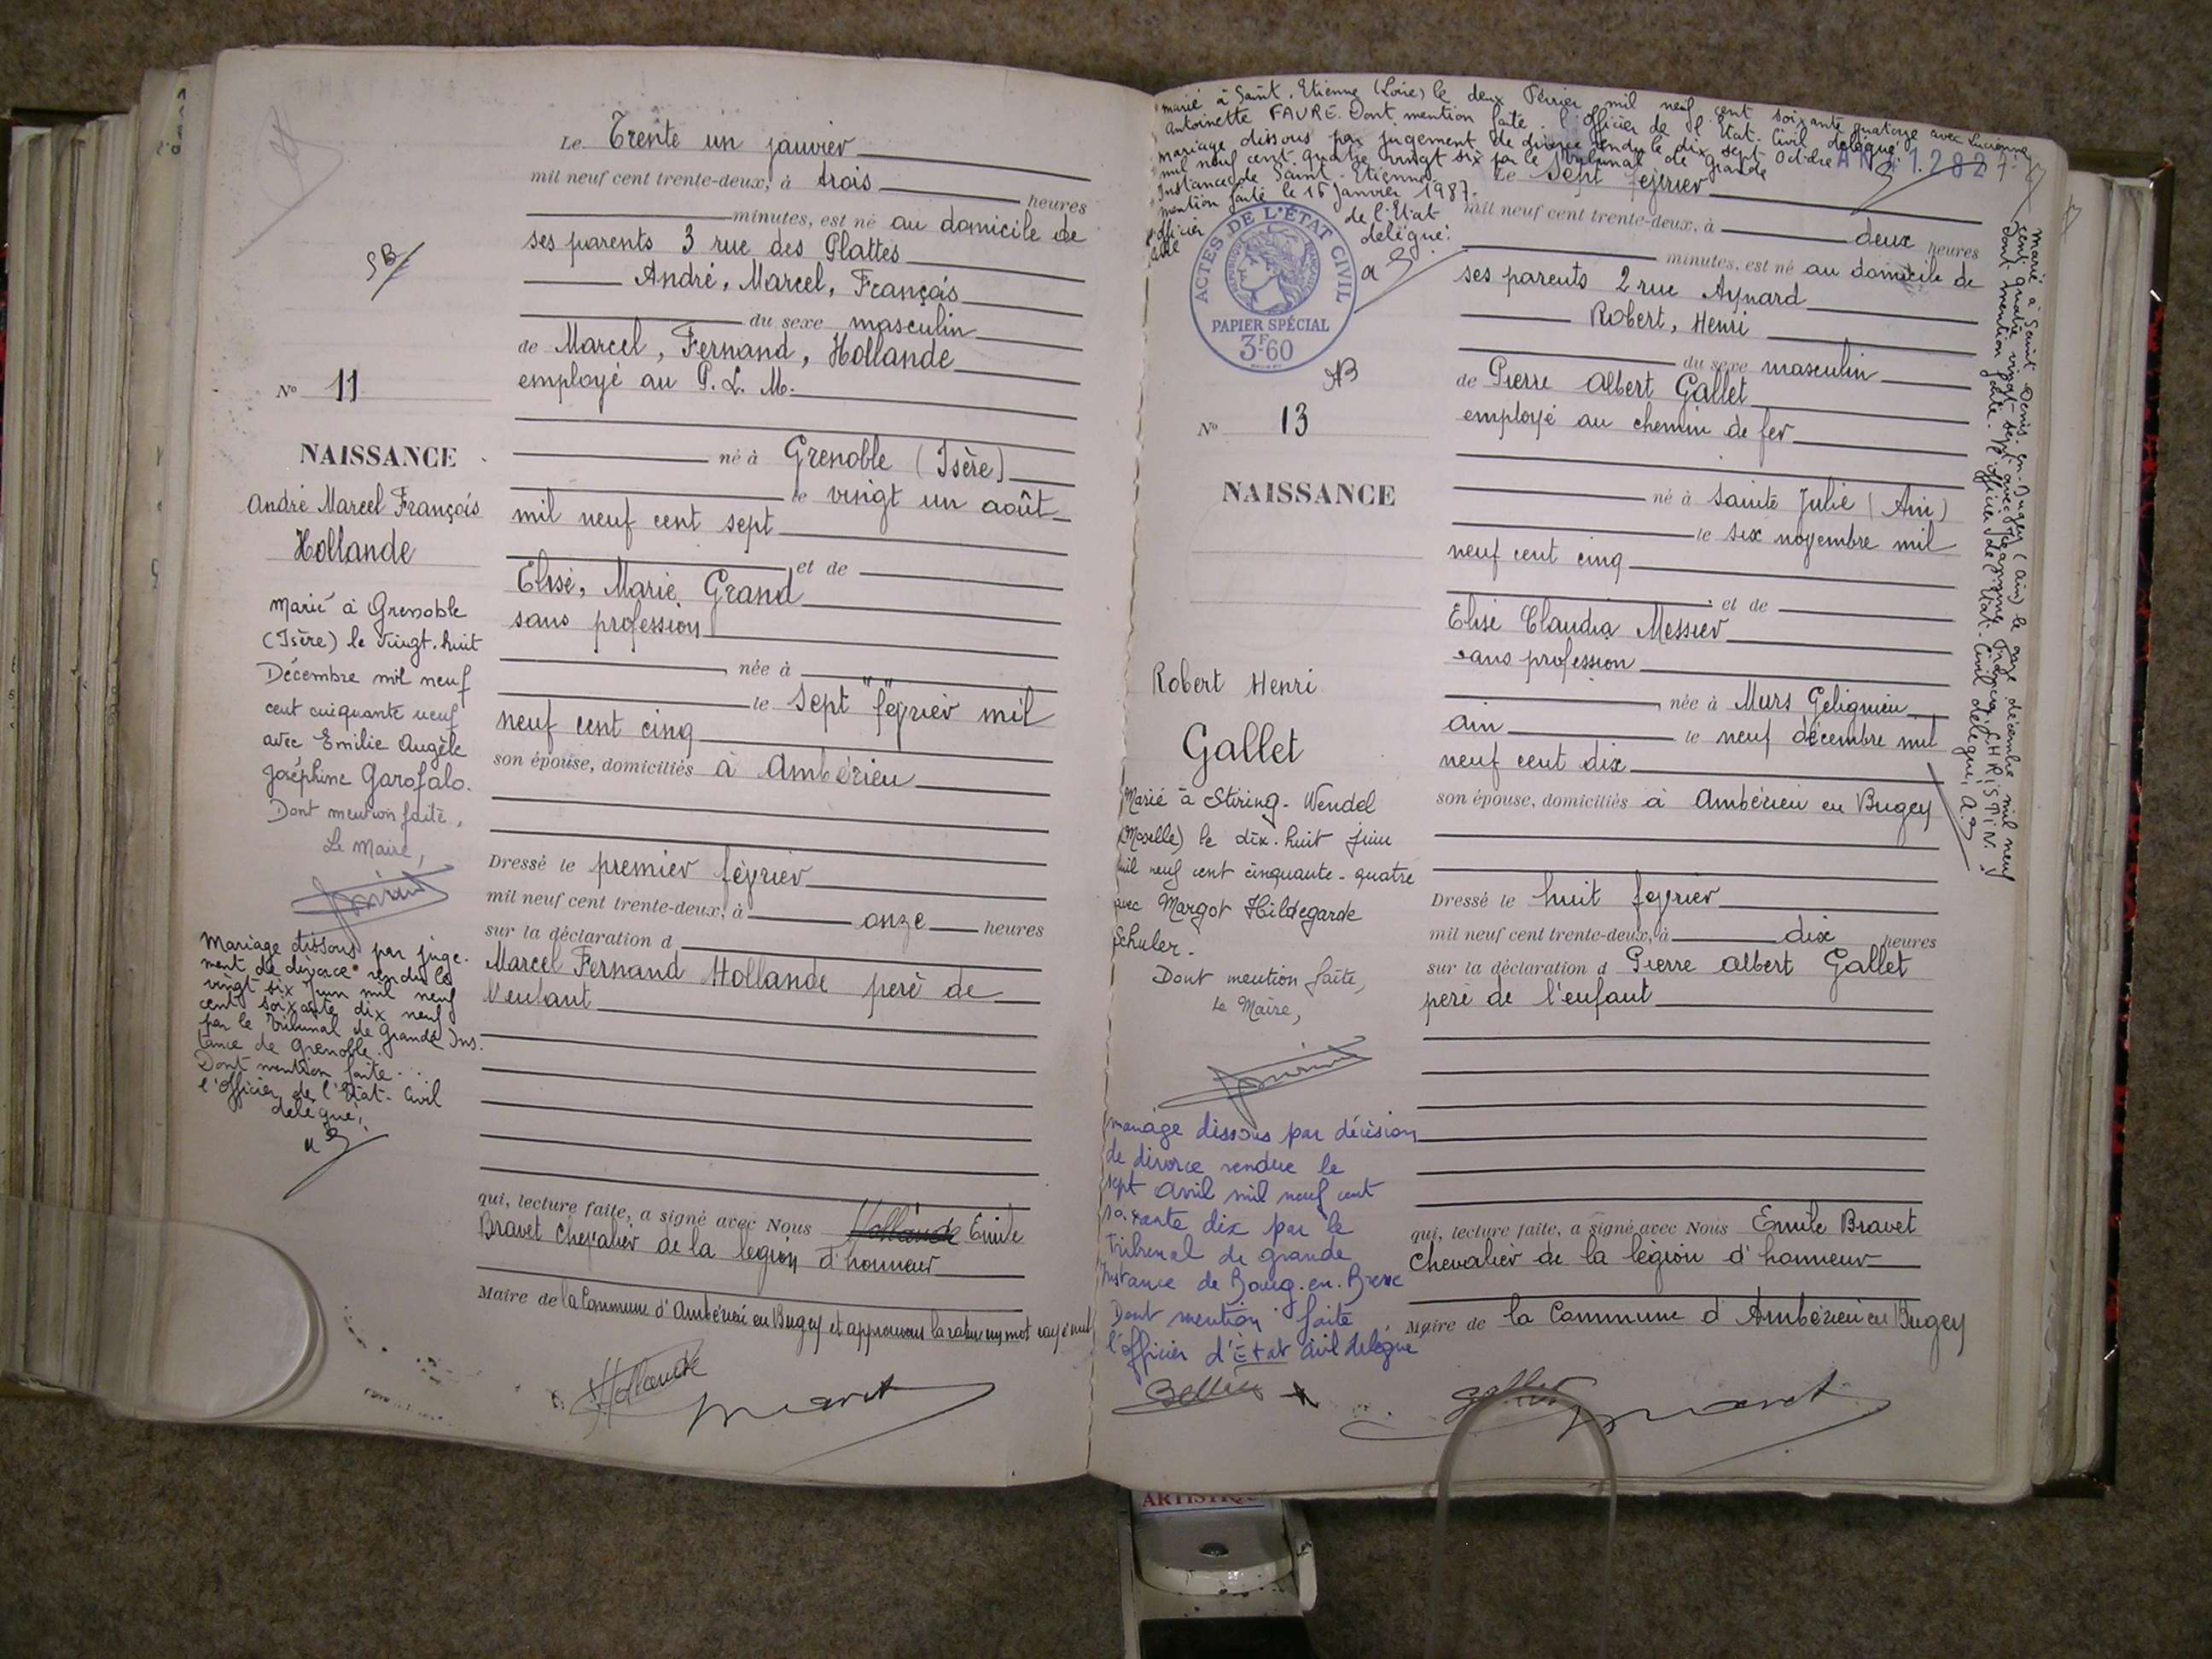 Le Trente un janvier
mil neuf cent trente-deux, à trois heures
minutes, est né au domicile de
ses parents 3 rue des Plattes
André, Marcel, François
du sexe masculin
de Marcel, Fernand, Hollande
employé au P. L. M.
né à Grenoble (Isère)
le vingt un août
mil neuf cent sept
et de
Elise, Marie Grand
sans profession
née à
le sept "fevrier mil
neuf cent cinq
son épouse, domiciliés à Ambérieu
Dressé le premier février
mil neuf cent trente-deux, à onze heures
sur la déclaration d
Marcel Fernand Hollande père de
l'enfant
qui, lecture faite, a signé avec Nous Hollande Emile
Bravet chevalier de la legion d'honneur
Maire de la Commune d'Ambérieu en Bugey et approuvons la rature un mot rayé nul
Hollande
Bravet
SB
N° 11
NAISSANCE
André Marcel François
Hollande
Marié à Grenoble
(Isère) le vingt-huit
Décembre mil neuf
cent cinquante neuf
avec Emilie Angèle
Joséphine Garofalo.
Dont mention faite,
Le Maire,
Mariage dissous par juge-
ment de divorce rendu le
vingt six Juin mil neuf
cent soixante dix neuf
par le Tribunal de Grande Ins-
tance de Grenoble.
Dont mention faite...
l'officier de l'Etat-Civil
délégué,
marié à Saint-Etienne (Loire) le deux Février mil neuf cent soixante quatorze avec Lucienne
Antoinette FAVRE. Dont mention faite. l'Officier de l'Etat-Civil délégué.
mariage dissous par jugement de divorce rendu le dix sept Octobre
mil neuf cent quatre vingt six par le Tribunal de Grande
Instance de Saint-Etienne
mention faite le 15 Janvier 1987.
officier de l'Etat
délégué.
AN 41.282
ACTES DE L'ÉTAT CIVIL
RÉPUBLIQUE FRANÇAISE
PAPIER SPÉCIAL
3F60
N° 13
NAISSANCE
Robert Henri
Gallet
Marié à Stiring-Wendel
(Moselle) le dix-huit juin
mil neuf cent cinquante-quatre
avec Margot Hildegarde
Schuler.
Dont mention faite,
Le Maire,
mariage dissous par décision
de divorce rendue le
sept avril mil neuf cent
soixante dix par le
Tribunal de Grande
Instance de Bourg-en-Bresse
Dont mention faite
l'officier d'État civil délégué
Le Sept fevrier
mil neuf cent trente-deux, à deux heures
minutes, est né au domicile de
ses parents 2 rue Aynard
Robert, Henri
du sexe masculin
de Pierre Albert Gallet
employé au chemin de fer
né à Sainte Julie (Ain)
le six novembre mil
neuf cent cinq
et de
Elise Claudia Messier
sans profession
née à Murs Gelignieu
Ain le neuf décembre mil
neuf cent dix
son épouse, domiciliés à Ambérieu en Bugey
Dressé le huit fevrier
mil neuf cent trente-deux, à dix heures
sur la déclaration d Pierre Albert Gallet
père de l'enfant
qui, lecture faite, a signé avec Nous Emile Bravet
Chevalier de la légion d'honneur
Maire de la Commune d'Ambérieu en Bugey
Gallet
Bravet
Marié à Saint Denis-en-Bugey (Ain) le onze décembre mil neuf
cent quatre vingt-sept avec Jeannine Françoise CHRISTIN.
Dont mention faite. L'officier de l'Etat-Civil délégué,
ARTISTIQUE